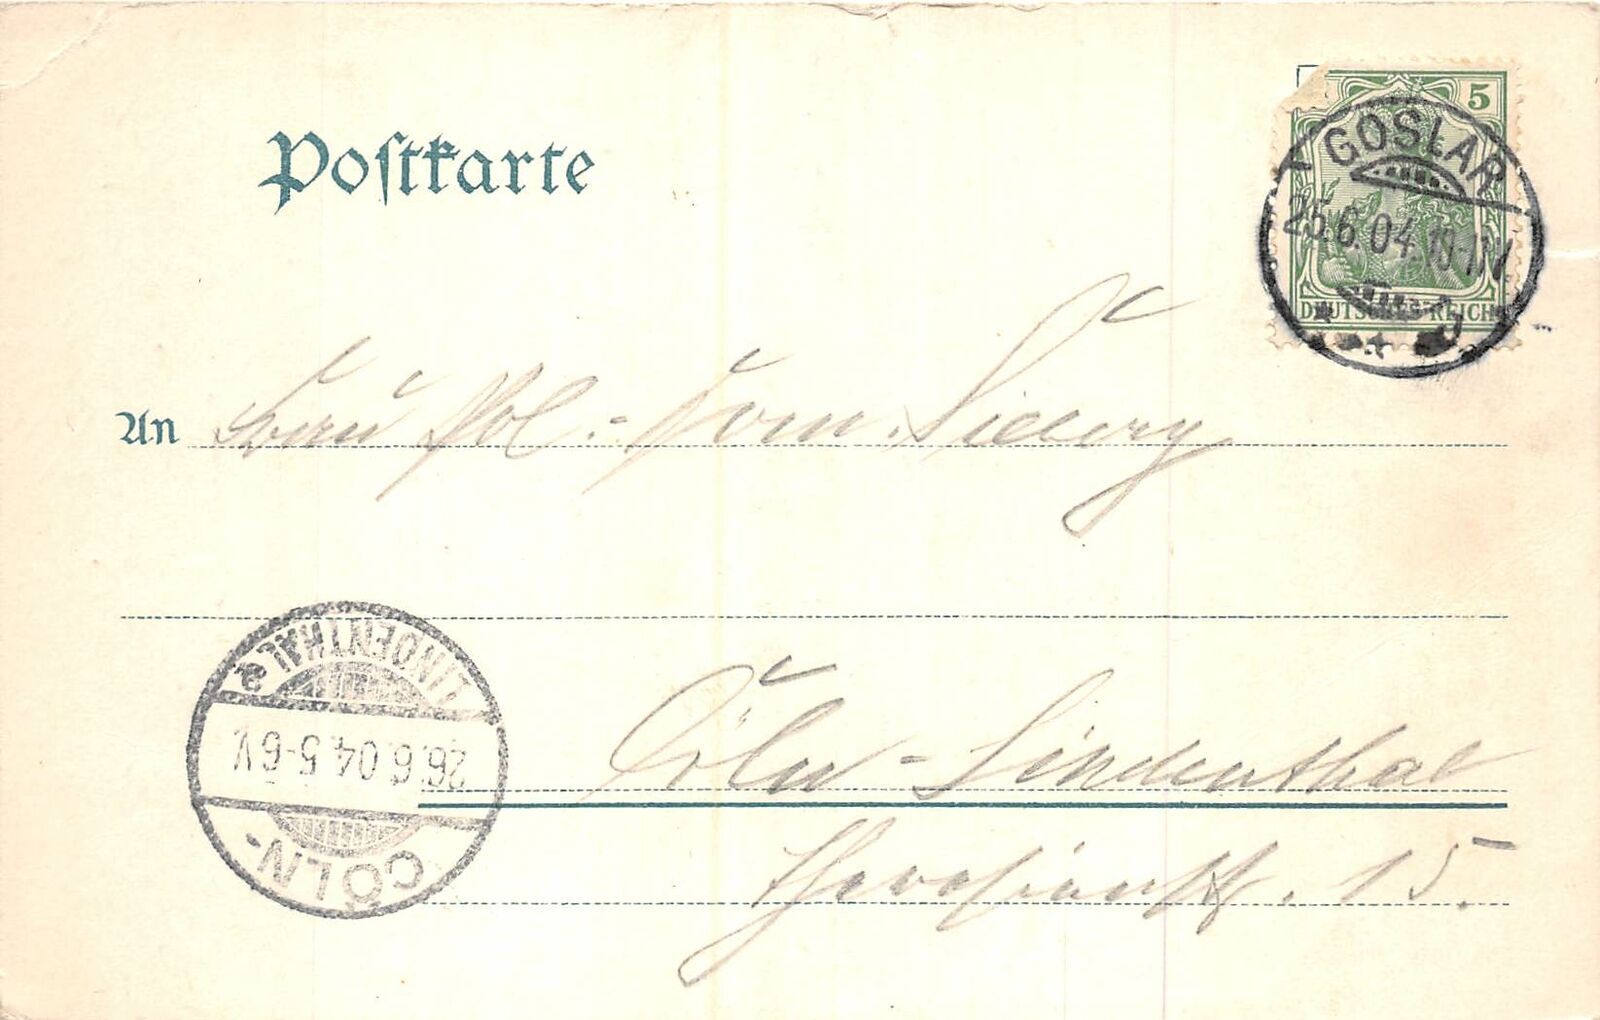 Postkarte
5
GOSLAR
25.6.04.10-11V.
DEUTSCHES REICH
An Frau Pol.- Kom. Sieberg
Cöln-Lindenthal
15.
CÖLN-
26.6.04.5-6V.
LINDENTHAL